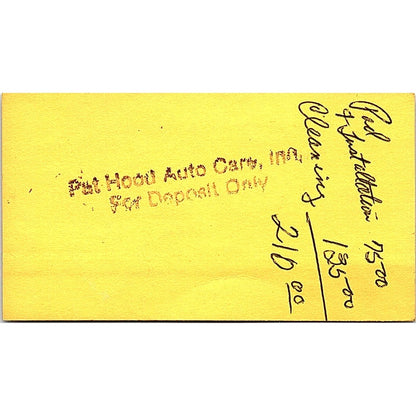 Pat Hood Auto Care, Inc.
For Deposit Only
Pad
& Installation 75-00
Cleaning 135-00
210 00